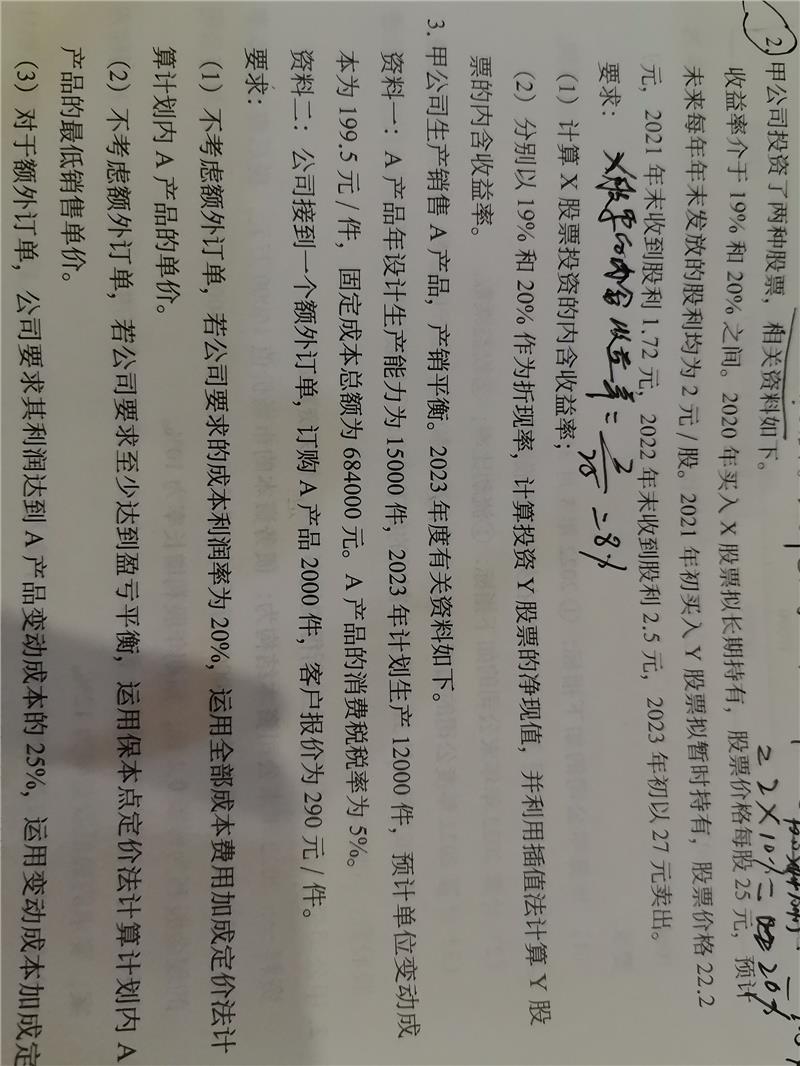 2) 甲公司投资了两种股票，相关资料如下。
收益率介于 19% 和 20% 之间。2020 年买入 X 股票拟长期持有，股票价格每股 25 元，预计
未来每年年末发放的股利均为 2 元 / 股。2021 年初买入 Y 股票拟暂时持有，股票价格 22.2
元，2021 年末收到股利 1.72 元，2022 年末收到股利 2.5 元，2023 年初以 27 元卖出。
要求：
X股票的内含收益率 = 2/25 = 8%
（1）计算 X 股票投资的内含收益率；
（2）分别以 19% 和 20% 作为折现率，计算投资 Y 股票的净现值，并利用插值法计算 Y 股
票的内含收益率。
3. 甲公司生产销售 A 产品，产销平衡。2023 年度有关资料如下。
资料一：A 产品年设计生产能力为 15000 件，2023 年计划生产 12000 件，预计单位变动成
本为 199.5 元 / 件，固定成本总额为 684000 元。A 产品的消费税税率为 5%。
资料二：公司接到一个额外订单，订购 A 产品 2000 件，客户报价为 290 元 / 件。
要求：
（1）不考虑额外订单，若公司要求的成本利润率为 20%，运用全部成本费用加成定价法计
算计划内 A 产品的单价。
（2）不考虑额外订单，若公司要求至少达到盈亏平衡，运用保本点定价法计算计划内 A
产品的最低销售单价。
（3）对于额外订单，公司要求其利润达到 A 产品变动成本的 25%，运用变动成本加成定